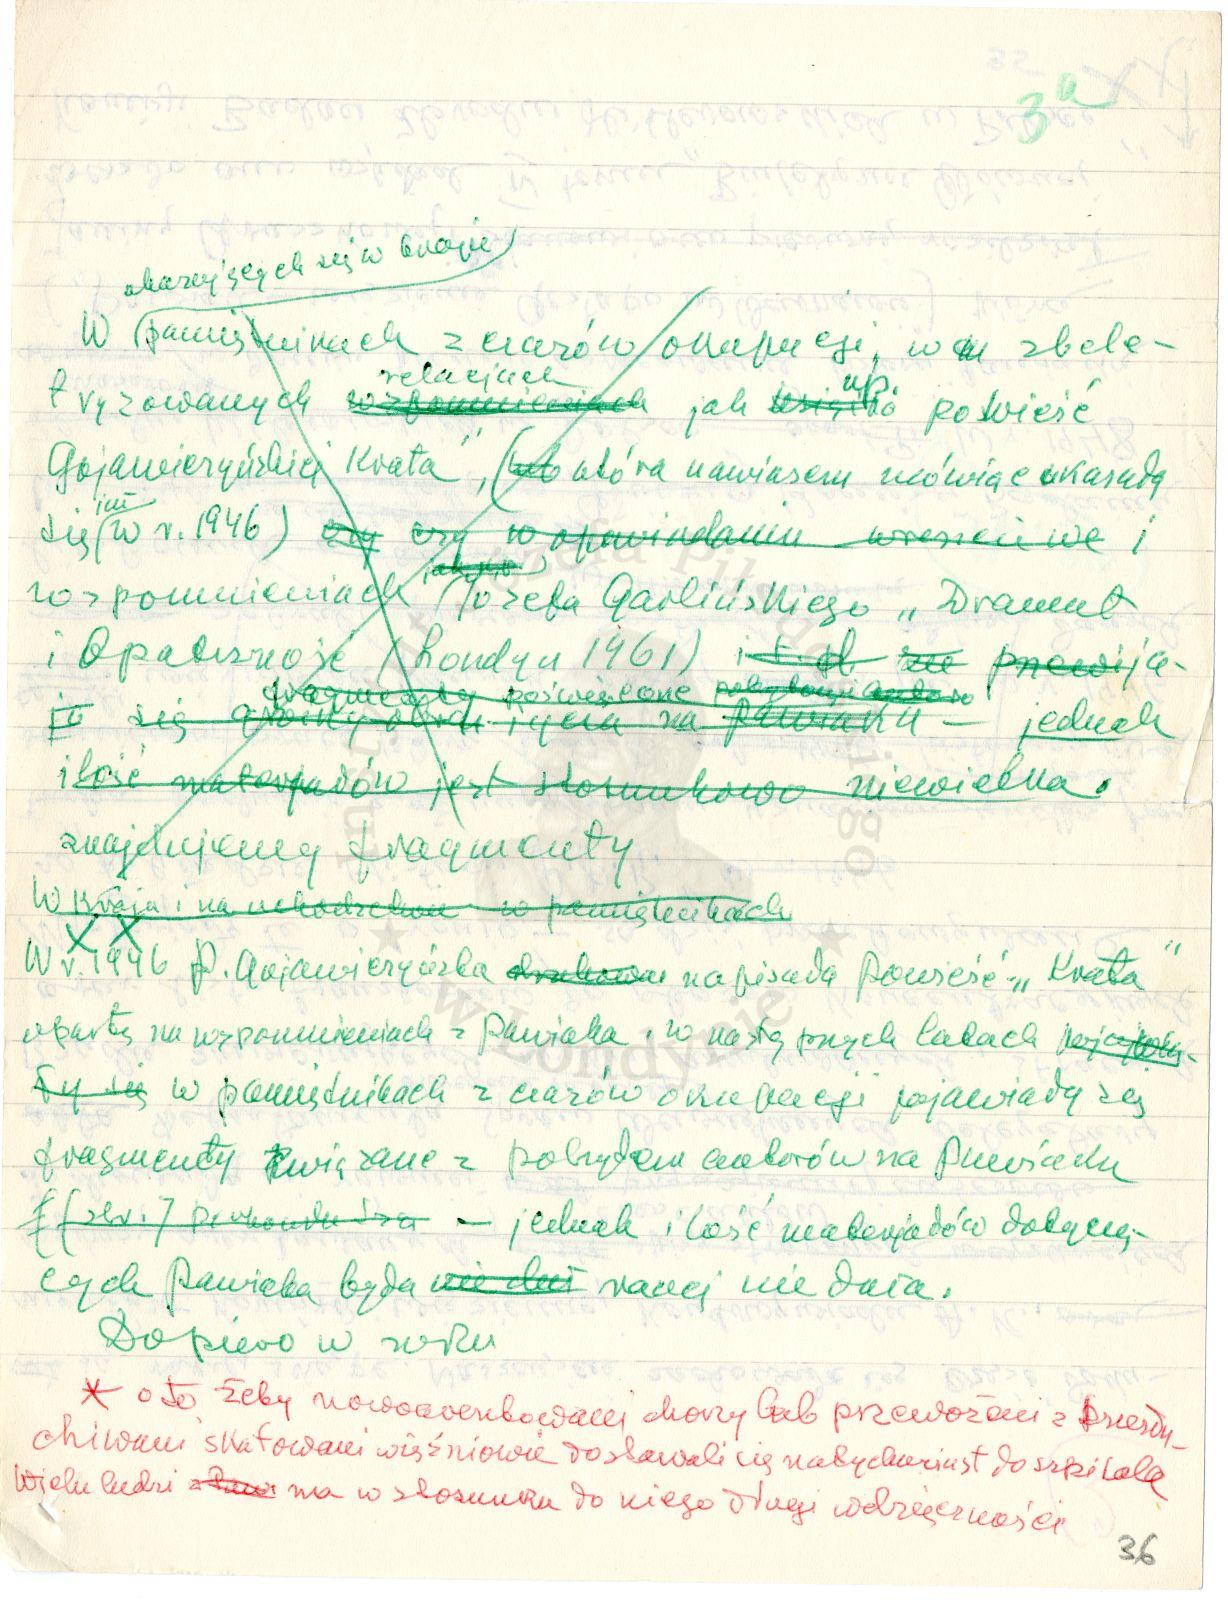 3a
ukazujących się w kraju
W pamiętnikach z czasów okupacji, w zbele-
tryzowanych wspomnieniach relacjach jak np. powieść
Gojawiczyńskiej Krata", (która nawiasem mówiąc ukazała
się już w r. 1946) czy czy w opowiadaniu i
wspomnieniach Józefa Garlińskiego „Dramat
i Opatrzność (Londyn 1961)
fragmenty poświęcone
się życia na Pawiaku – jednak
ilość materjałów jest stosunkowo niewielka.
znajdujemy fragmenty
W kraju i na uchodźctwie w pamiętnikach
W r. 1946 P. Gojawiczyńska napisała powieść „Krata"
opartą na wspomnieniach z Pawiaka, w następnych latach
ły się w pamiętnikach z czasów okupacji pojawiały się
fragmenty związane z pobytem autorów na Pawiaku
– jednak ilość materjałów dotyczą-
cych Pawiaka była raczej nie duża.
Dopiero w roku
* o to żeby nowoaresztowani chorzy lub przewożeni z przesłu-
chiwani skatowani więźniowie dostawali się natychmiast do szpitala
Wielu ludzi ma w stosunku do niego długi wdzięczności
36
Instytut Józefa Piłsudskiego
★ w Londynie ★